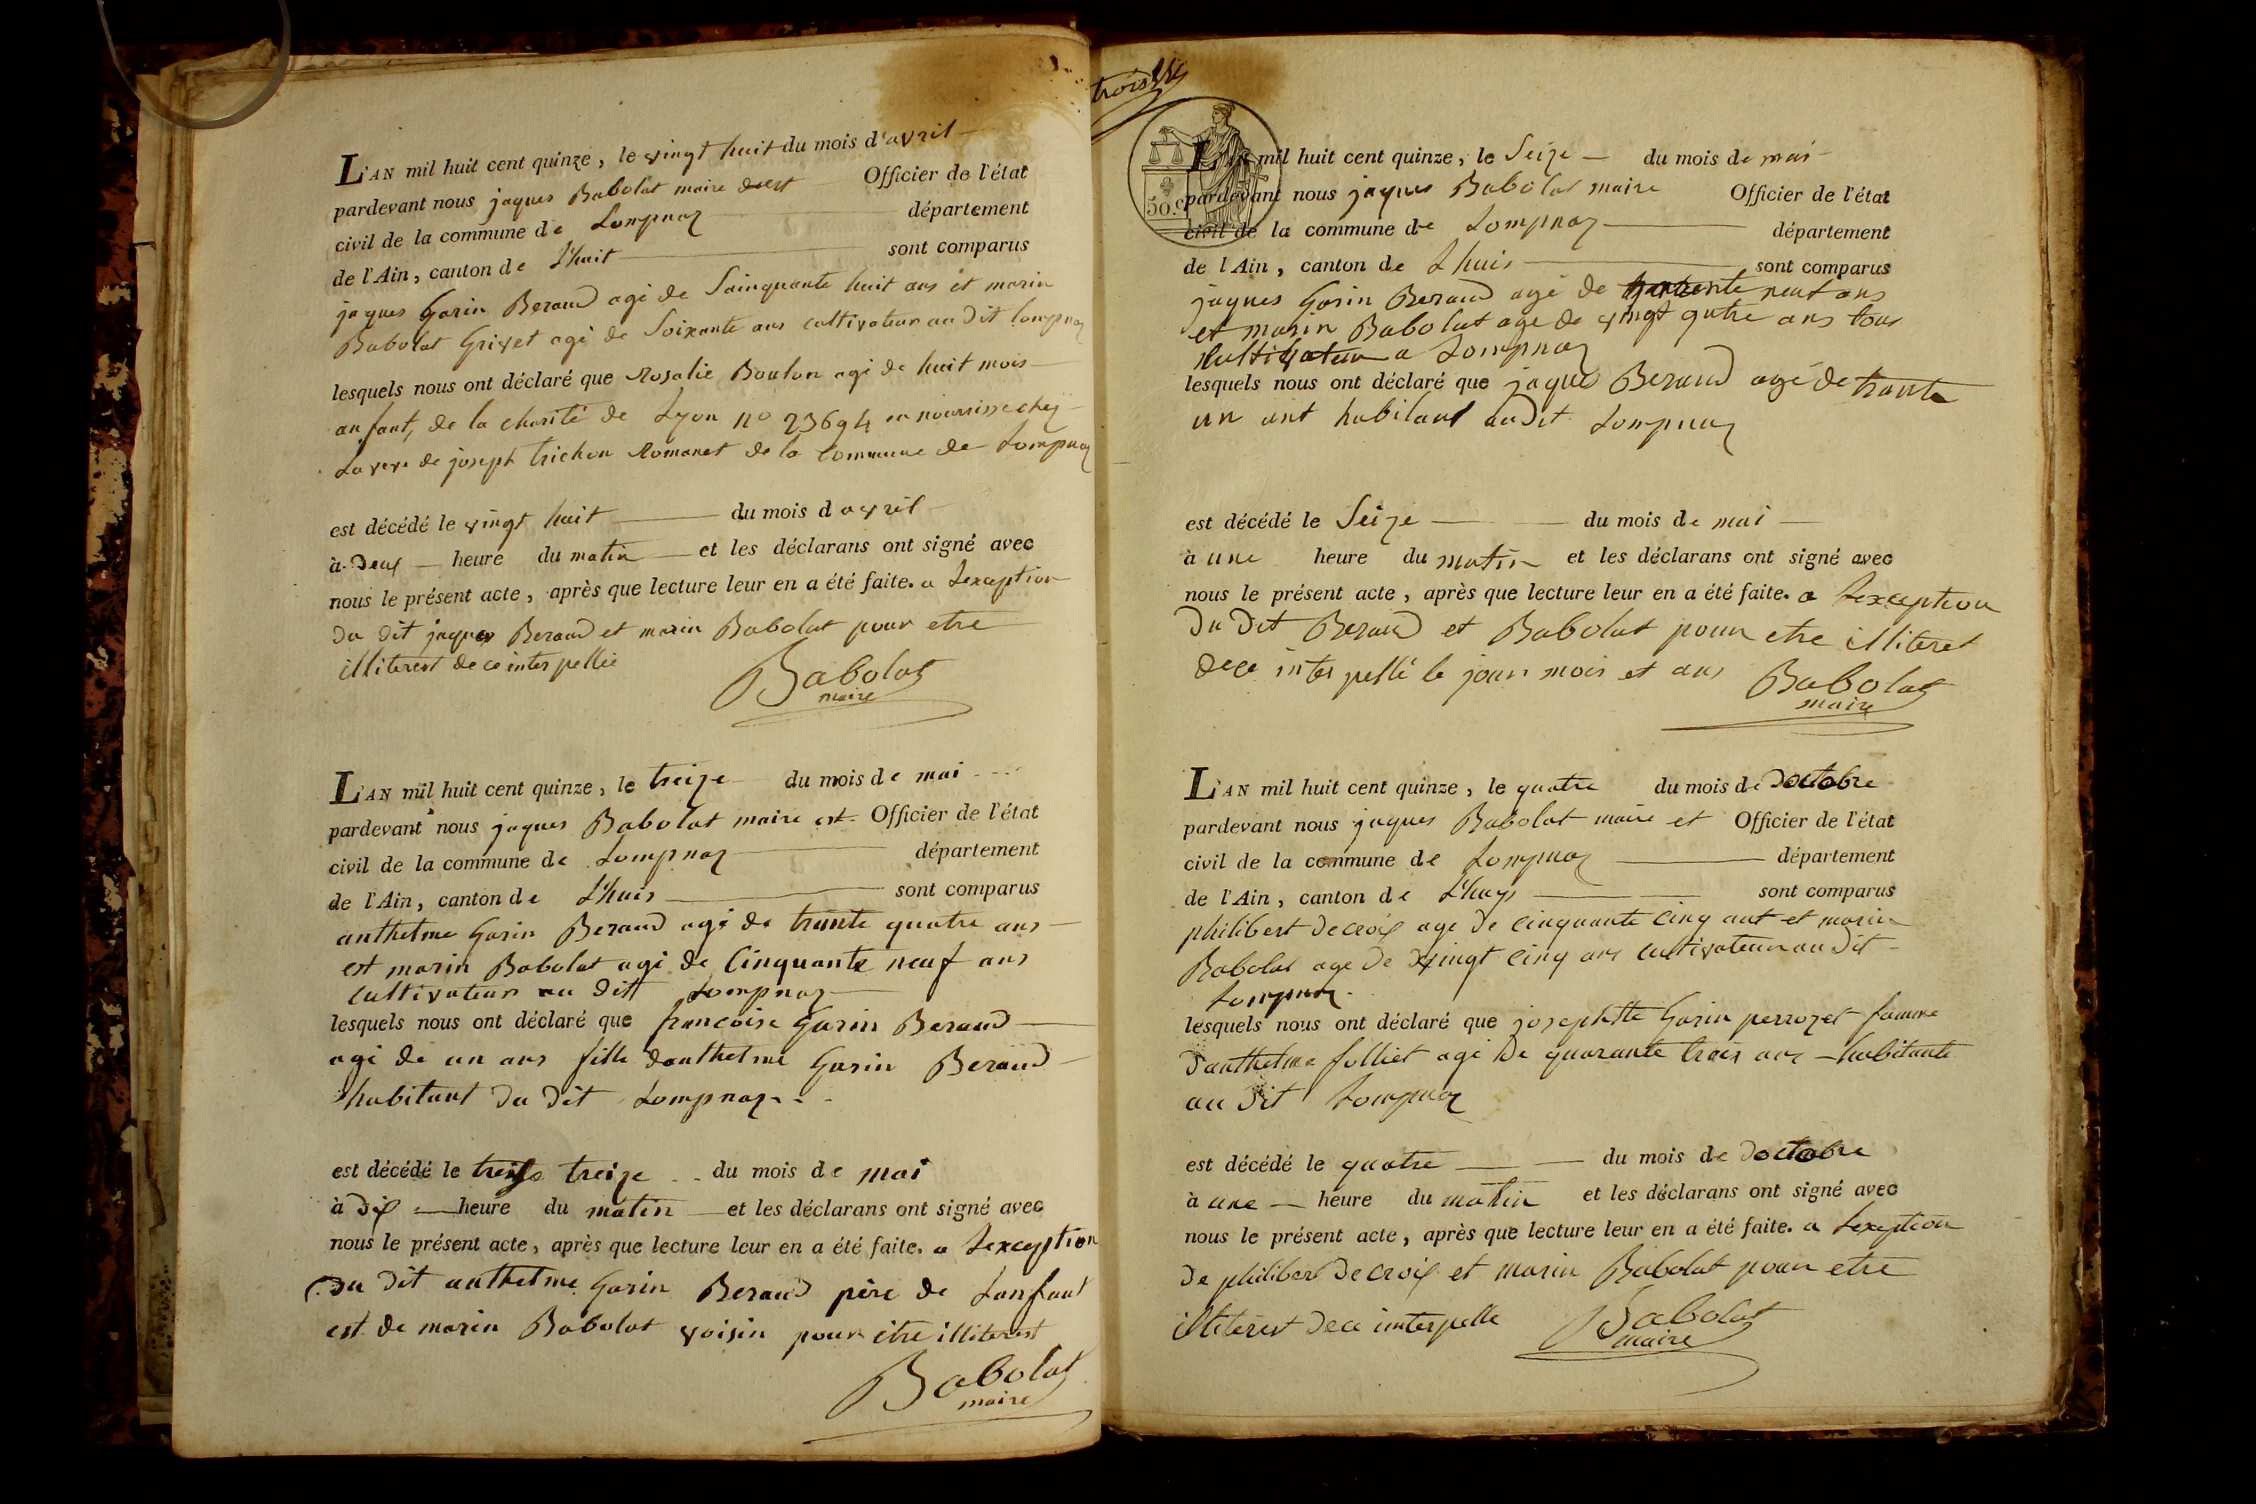 L'AN mil huit cent quinze, le vingt huit du mois d'avril
pardevant nous jaques Babolat maire Officier de l'état
civil de la commune de Lompnaz département
de l'Ain, canton de L'huit sont comparus
jaques Garin Beraud agé de Sainquante huit ans et marin
Babolat Grivet agé de Soixante ans cultivateur au dit lompnaz
lesquels nous ont déclaré que Rosalie Boulon agé de huit mois
anfant, de la charité de Lyon no 23694 en nourrisse chez
La veve de joseph trichon Romanet de la Commune de Lompnaz
est décédé le vingt huit du mois d avril
à deux heure du matin et les déclarans ont signé avec
nous le présent acte, après que lecture leur en a été faite. a Lexception
du dit jaques Beraud et marin Babolat pour etre
illiterest de ce interpellié
Babolat
maire
L'AN mil huit cent quinze, le treize du mois de mai
pardevant nous jaques Babolat maire est Officier de l'état
civil de la commune de Lompnaz département
de l'Ain, canton de L'huis sont comparus
anthelme Garin Beraud agé de trante quatre ans
est marin Babolat agé de Cinquante neuf ans
cultivateur au dit Lompnaz
lesquels nous ont déclaré que francoise Garin Beraud
agé de un ans fille danthelme Garin Beraud
habitant du dit Lompnaz
est décédé le treize treize du mois de mai
à dix heure du matin et les déclarans ont signé avec
nous le présent acte, après que lecture leur en a été faite. a Lexception
du dit anthelme Garin Beraud père de Lanfant
est de marin Babolat voisin pour être illiterest
Babolat
maire
trois
50 c
L'AN mil huit cent quinze, le Seize du mois de mai
pardevant nous jaques Babolat maire Officier de l'état
civil de la commune de Lompnaz département
de l'Ain, canton de Lhuis sont comparus
jaques Garin Beraud agé de neuf ans
et marin Babolat agé de vingt qutre ans tous
Cultivateur a Lompnaz
lesquels nous ont déclaré que jaques Beraud agé de trante
un ant habitant audit Lompnaz
est décédé le Seize du mois de mai
à une heure du matin et les déclarans ont signé avec
nous le présent acte, après que lecture leur en a été faite. a Lexception
du dit Beraud et Babolat pour etre illiteret
dece interpellé le jour mois et ans
Babolat
maire
L'AN mil huit cent quinze, le quatre du mois de doctobre
pardevant nous jaques Babolat maire et Officier de l'état
civil de la commune de Lompnaz département
de l'Ain, canton de L'huys sont comparus
philibert decroix age de cinquante cinq ant et marin
Babolat age de vingt cinq ans cultivateur au dit
Lompnaz
lesquels nous ont déclaré que josephtte Garin perrozet famme
d'anthelme folliet agé de quarante trois ans habitante
au dit Lompnaz
est décédé le quatre du mois de doctobre
à une heure du matin et les déclarans ont signé avec
nous le présent acte, après que lecture leur en a été faite. a Lexeption
de philiber decroix et marin Babolat pour etre
illiterest dece interpelle
Babolat
maire